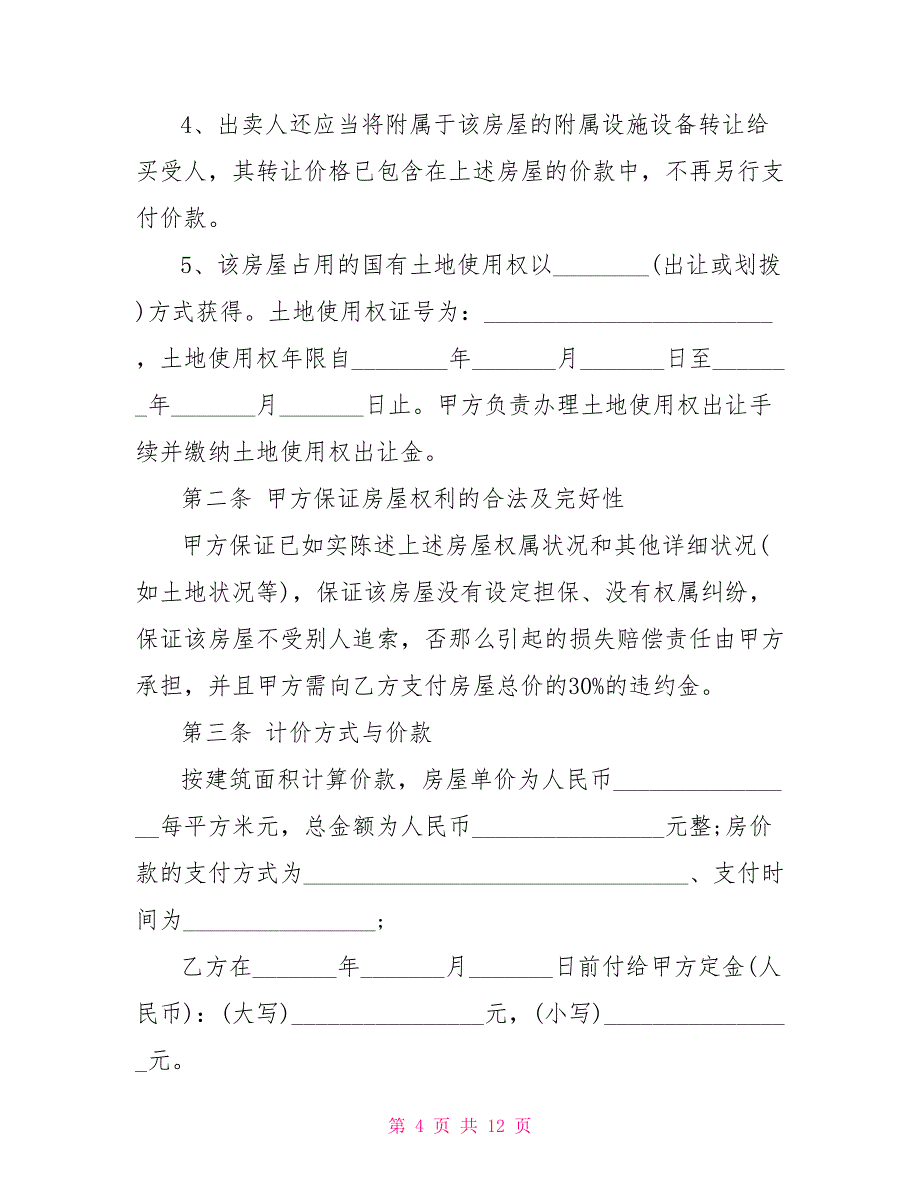 4、出卖人还应当将附属于该房屋的附属设施设备转让给
买受人，其转让价格已包含在上述房屋的价款中，不再另行支
付价款。
5、该房屋占用的国有土地使用权以________(出让或划拨
)方式获得。土地使用权证号为：________________________
，土地使用权年限自________年_______月_______日至______
_年_______月_______日止。甲方负责办理土地使用权出让手
续并缴纳土地使用权出让金。
第二条 甲方保证房屋权利的合法及完好性
甲方保证已如实陈述上述房屋权属状况和其他详细状况(
如土地状况等)，保证该房屋没有设定担保、没有权属纠纷，
保证该房屋不受别人追索，否那么引起的损失赔偿责任由甲方
承担，并且甲方需向乙方支付房屋总价的30%的违约金。
第三条 计价方式与价款
按建筑面积计算价款，房屋单价为人民币______________
__每平方米元，总金额为人民币________________元整;房价
款的支付方式为________________________________、支付时
间为________________;
乙方在_______年_______月_______日前付给甲方定金(人
民币)：(大写)________________元，(小写)_______________
_元。
第 4 页 共 12 页